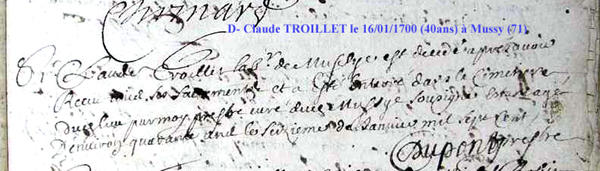 D- Claude TROILLET le 16/01/1700 (40ans) à Mussy (71)
Claude Troillet lab.r de Mussye est decedé apres avoir
Receu tous ses sacrements et a esté enterré dans le Cimetiere
dudit lieu par moy pbstre curé dudit Mussye soubsigné estant aagé
d'environ quarante ans le seizieme de Janvier mil sept cent
Dupont prestre